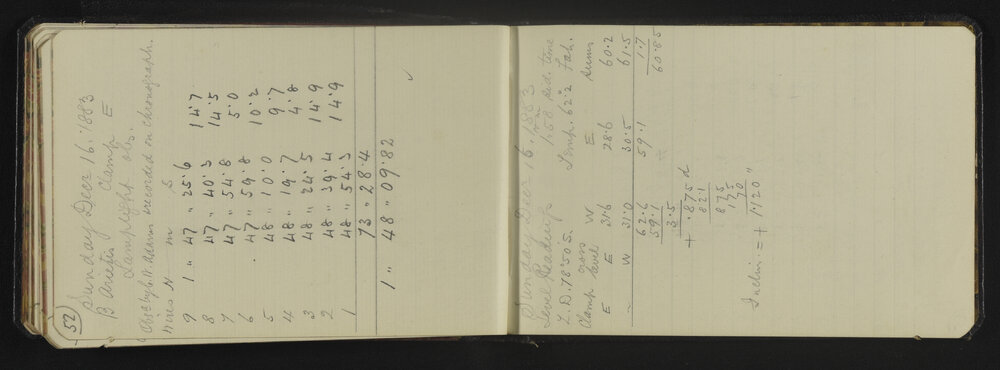 52
Sunday Decr 16. 1883
B Arietis Clamp E
Lamplight obs.
Obsd by C. A. Adams & recorded on Chronograph.
Wires H m s
9 1 " 47 " 25.6 14.7
8 47 " 40.3 14.5
7 47 " 54.8 5.0
6 47 " 59.8 10.2
5 48 " 10.0 9.7
4 48 " 19.7 4.8
3 48 " 24.5 14.9
2 48 " 39.4 14.9
1 48 " 54.3
73 " 28.4
1 " 48 " 09.82
Sunday Decr 16. 1883
Level Readings 1.58 Sid. time
Z. D. 78° 50' S. Temp. 62° Fah.
Clamp level
E E W E Sums
31.6 28.6 60.2
W 31.0 30.5 61.5
62.6 59.1 1.7
59.1 60.85
3.5
+ .875 d
821
875
175
70
Inclin. = + 1.120 "